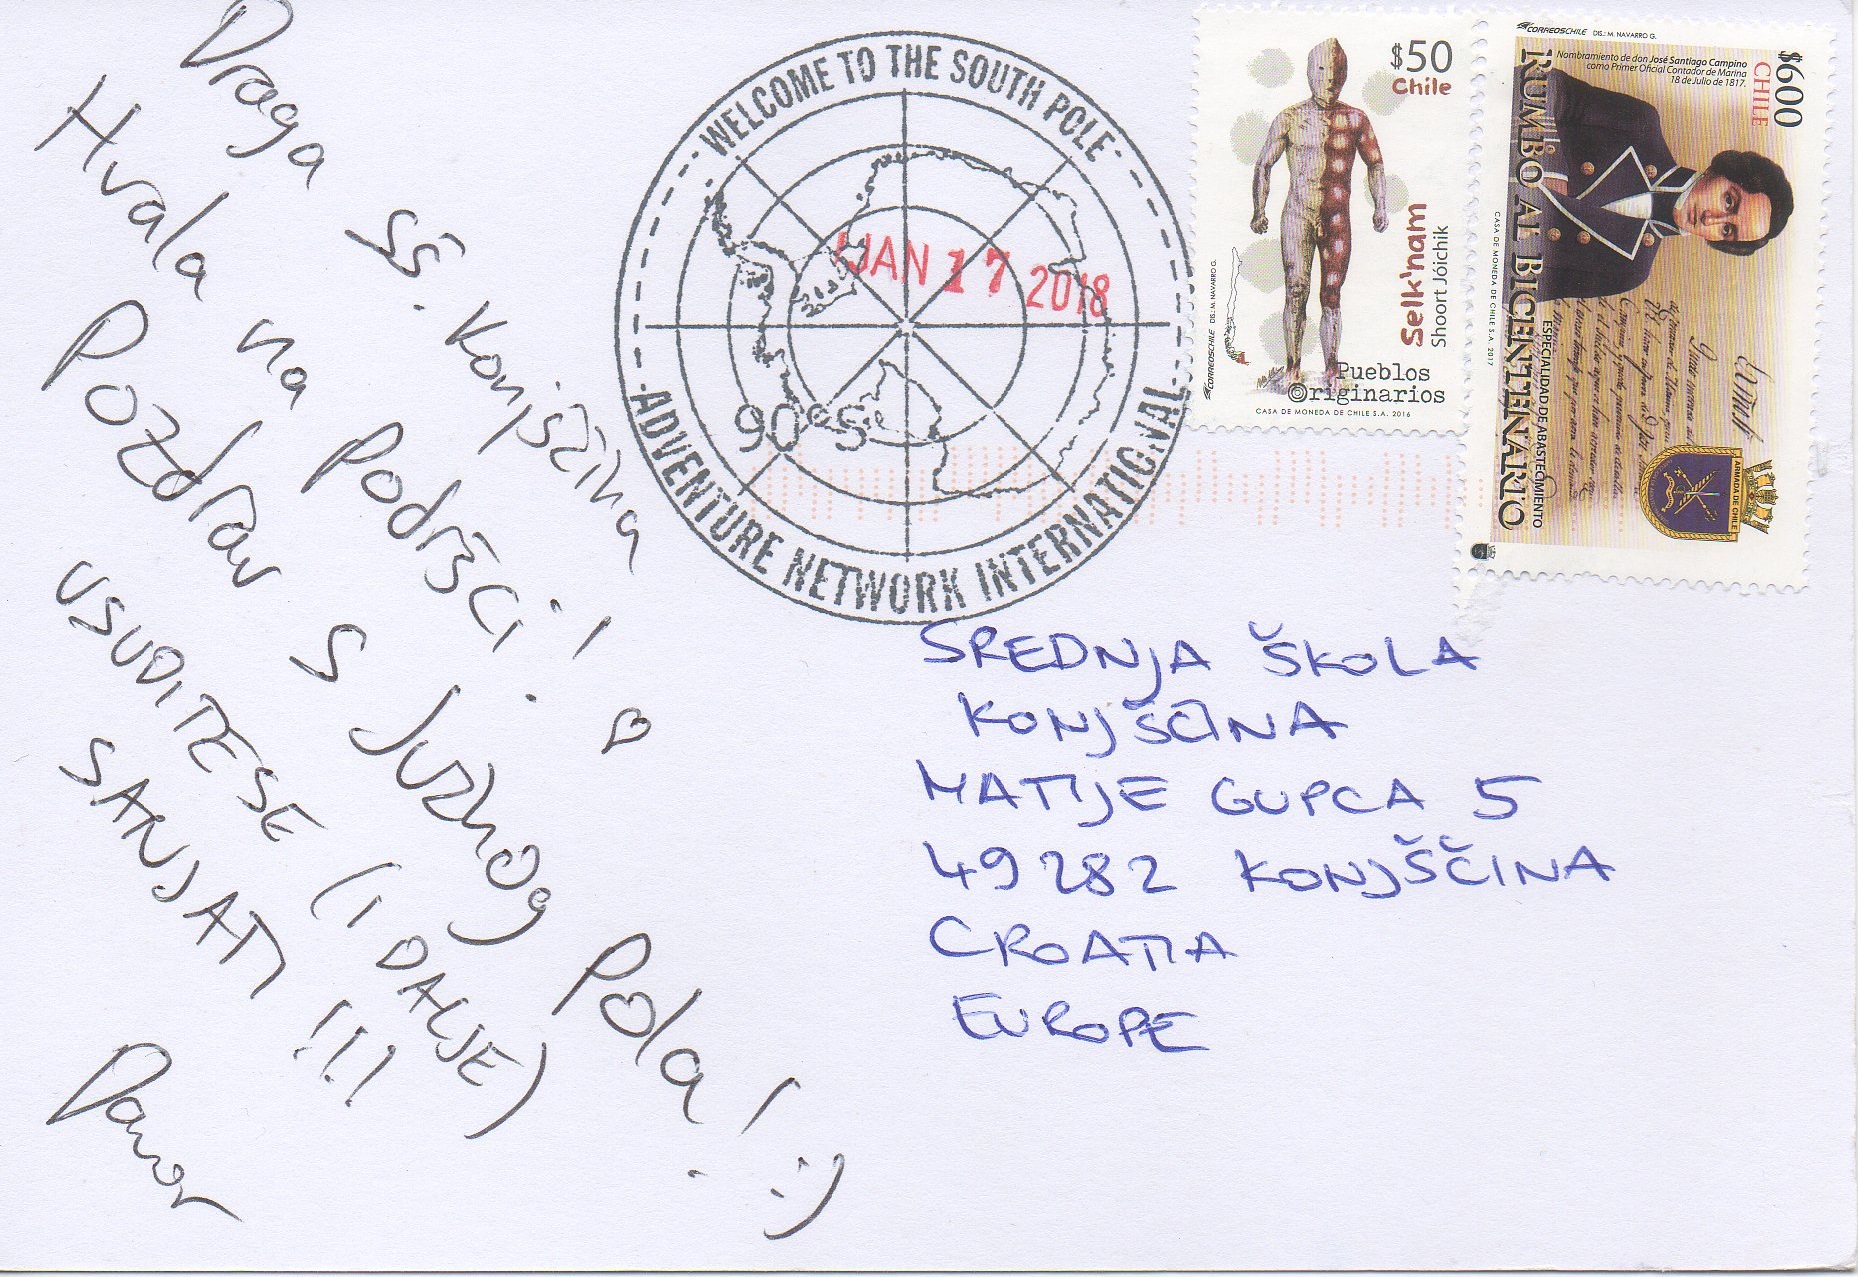 Draga SŠ. Konjščina
Hvala na podršci!!
Pozdrav s Južnog pola! :)
USUDITE SE (I DALJE)
SANJATI !!!
Davor
WELCOME TO THE SOUTH POLE
JAN 17 2018
90°S
ADVENTURE NETWORK INTERNATIONAL
$50
Chile
Selk'nam
Shoort Jóichik
Pueblos
Originarios
CORREOSCHILE DIS.: M. NAVARRO G.
CASA DE MONEDA DE CHILE S.A. 2016
CORREOSCHILE DIS.: M. NAVARRO G.
$600
CHILE
Nombramiento de don José Santiago Campino
como Primer Oficial Contador de Marina
18 de Julio de 1817.
RUMBO AL BICENTENARIO
ESPECIALIDAD DE ABASTECIMIENTO
ARMADA DE CHILE
CASA DE MONEDA DE CHILE S.A. 2017
SREDNJA ŠKOLA
KONJŠČINA
MATIJE GUPCA 5
49282 KONJŠČINA
CROATIA
EUROPE